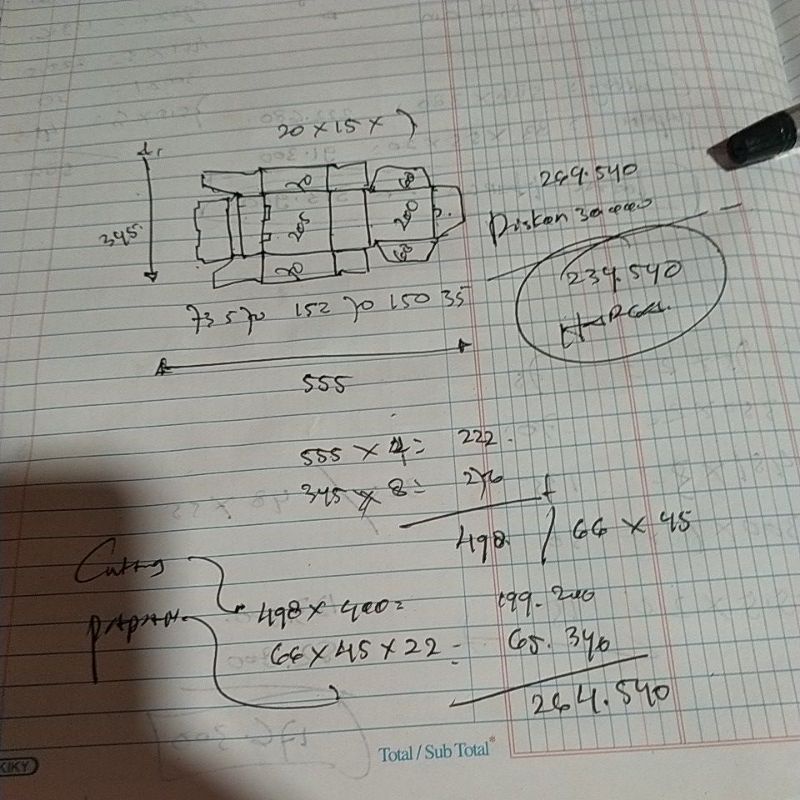 20 x 15 x 7
345
20
200
20
200
73 5 70 152 70 150 35
555
264.540
Diskon 30.000
234.540
Harga.
555 x 4 = 222.
345 x 8 = 276 +
498 / 66 x 45
Cutting
498 x 400 = 199.200
papan
66 x 45 x 22 = 65.340
264.540
Total / Sub Total*
KIKY